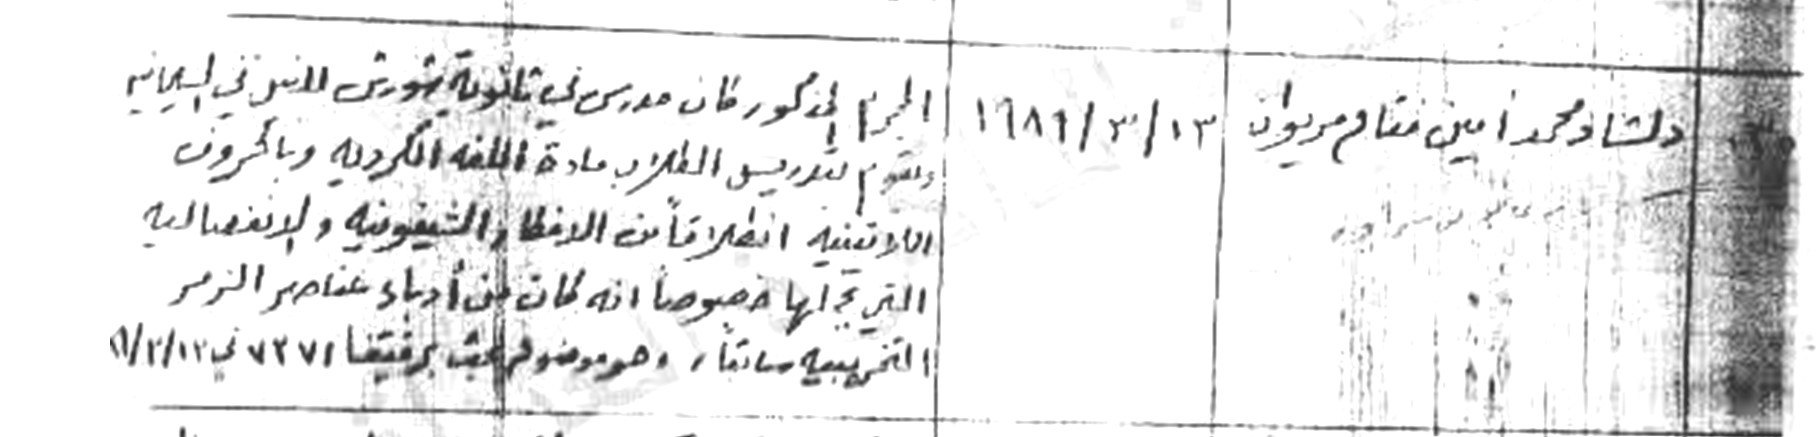 دلشاد محمد أمين فتاح مريوان
١٩٨٩/٣/١٣
المجرم المذكور كان مدرس في ثانوية شورش للبنين في السليمانيه
ويقوم بتدريس الطلاب مادة اللغه الكرديه وبالحروف
اللاتينيه انطلاقاً من الافكار الشيفونيه والانفصاليه
التي يحملها خصوصاً انه كان من أدباء عناصر الزمر
التخريبيه سابقاً، وهو موضوع بحث برقيتنا ٧٢٧١ في ٨٩/٣/١٣